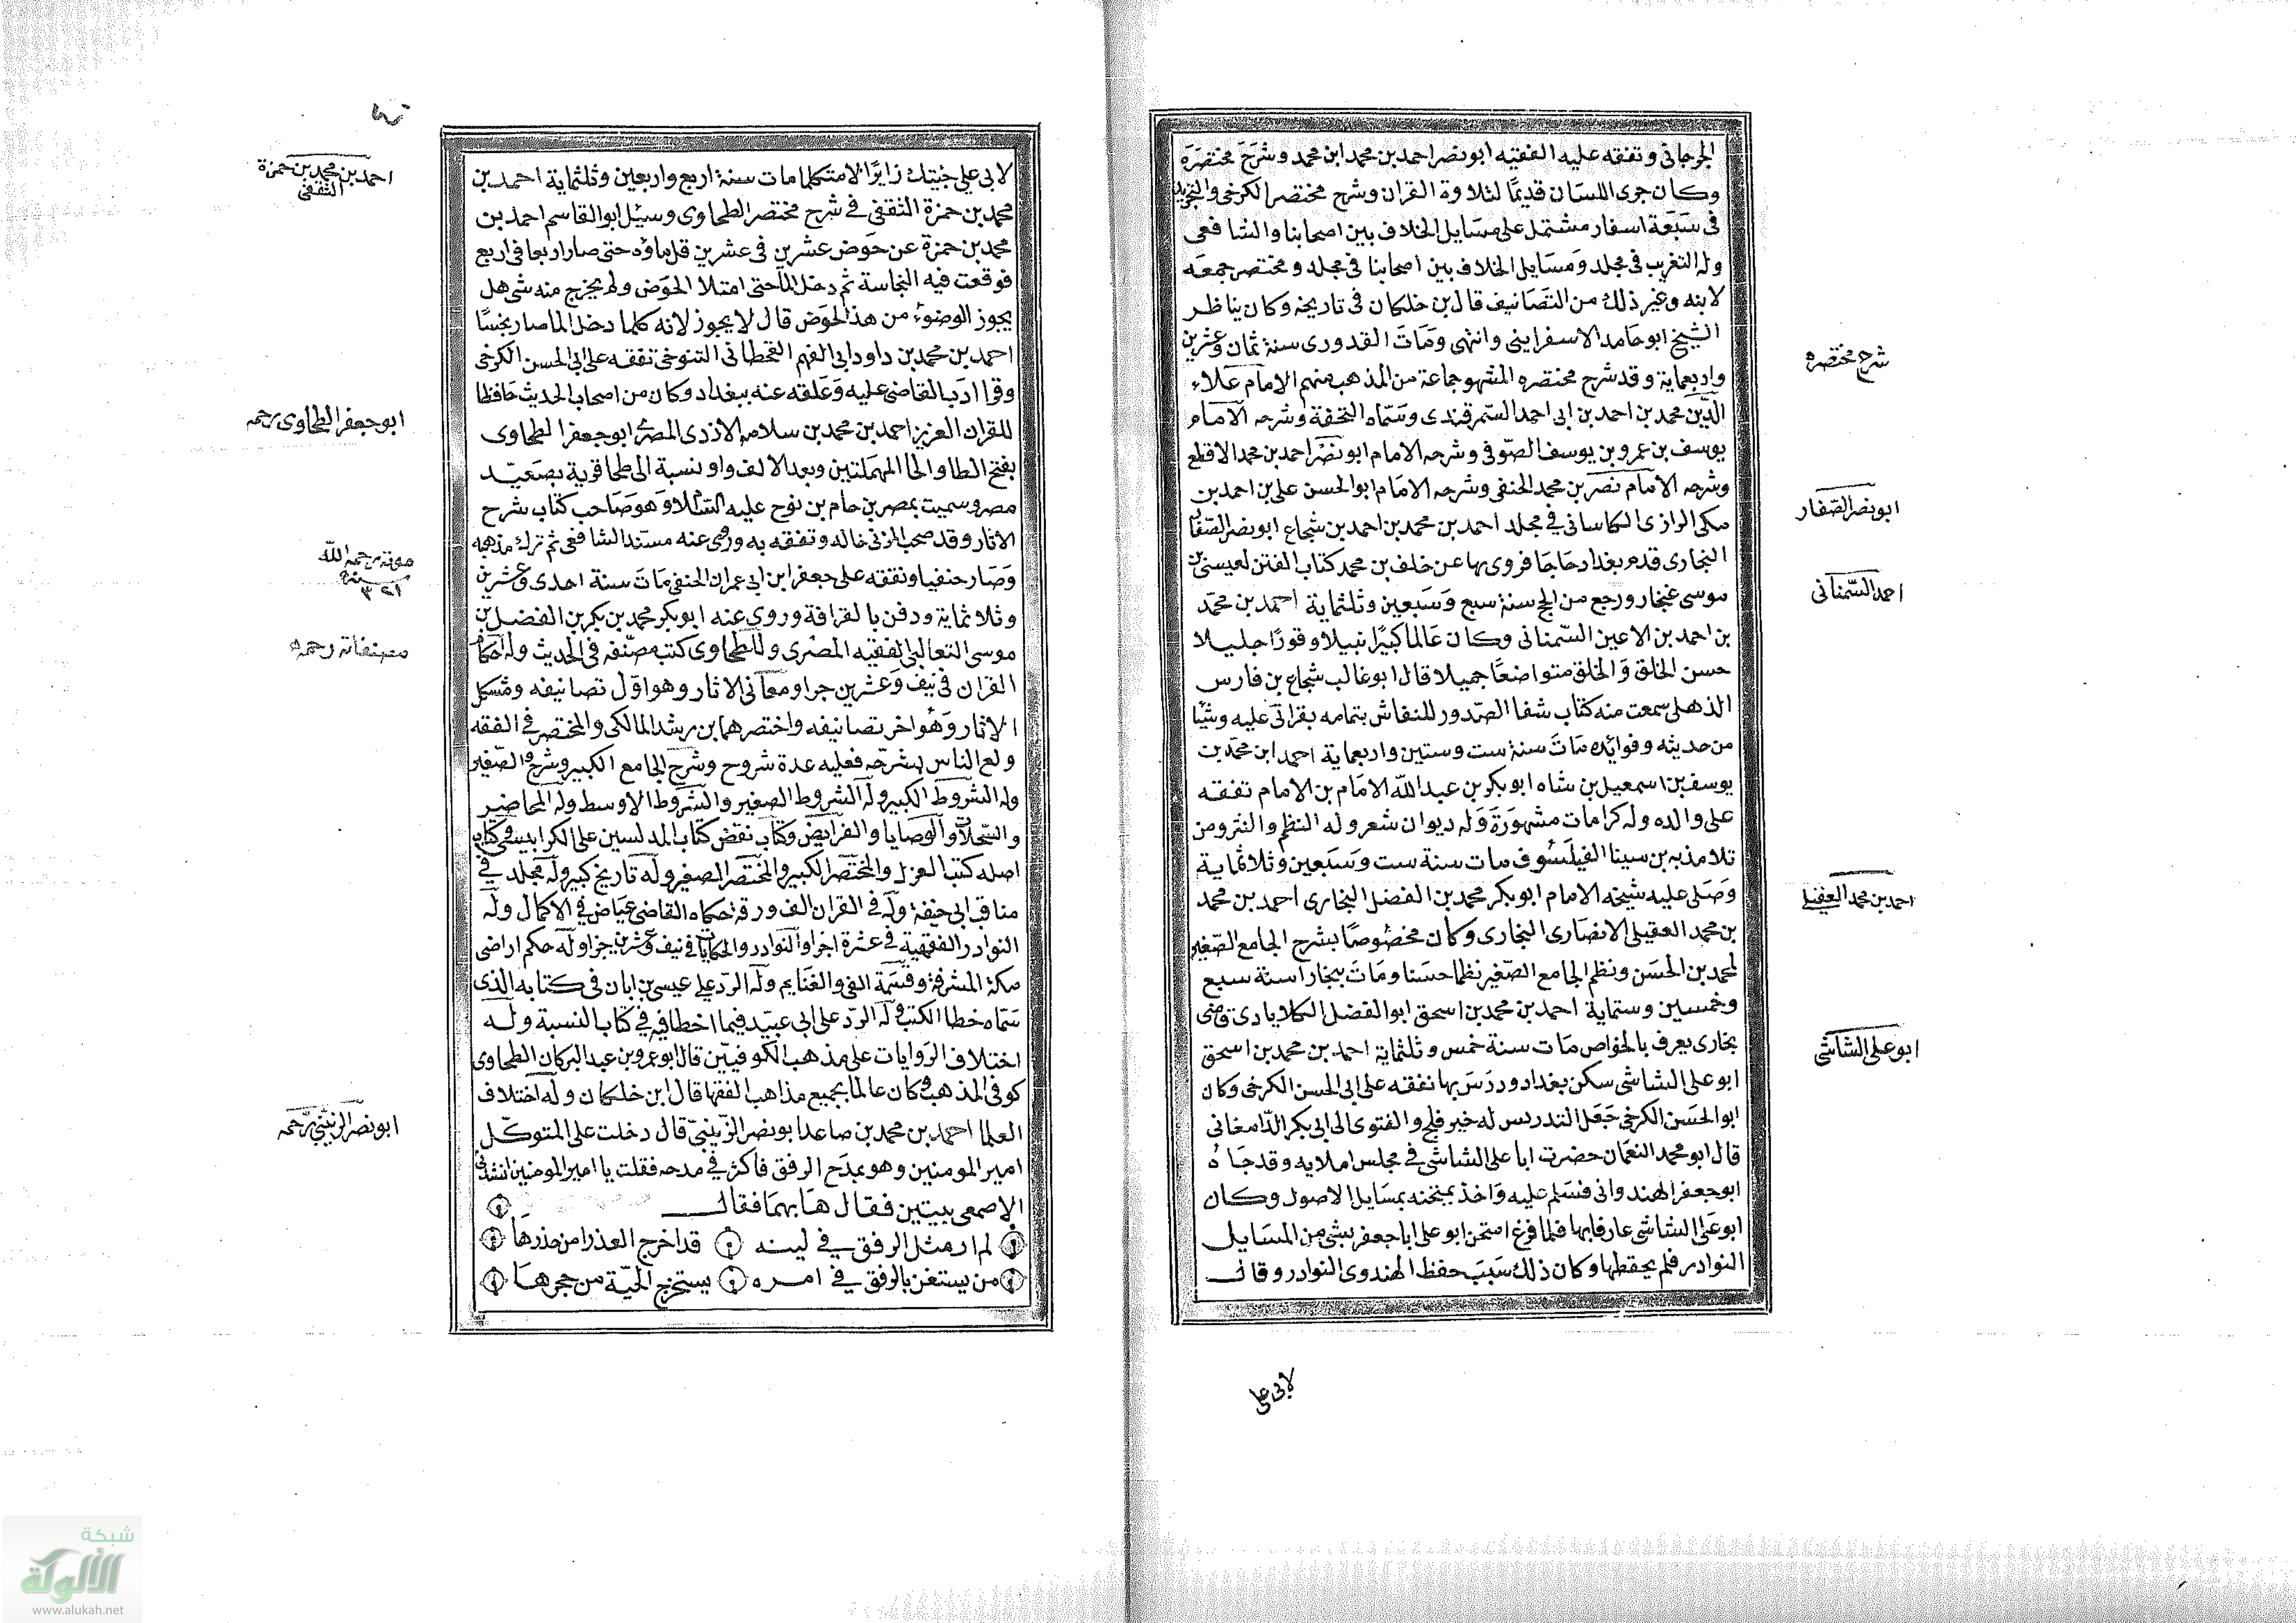 الجرجاني وتفقه عليه الفقيه ابو نصر احمد بن محمد ابن محمد وشرح مختصره
وكان جرى اللسان قديمًا لتلاوة القران وشرح مختصر الكرخى والتجريد
فى سبعة اسفار مشتمل على مسايل الخلاف بين اصحابنا والشافعى
وله التقريب فى مجلد ومسايل الخلاف بين اصحابنا فى مجلد ومختصر جمعه
لابنه وغير ذلك من التصانيف قال بن خلكان فى تاريخه وكان يناظر
الشيخ ابو حامد الاسفراينى وانتهى ومات القدورى سنة ثمان وعشرين
واربعماية وقد شرح مختصره المشهو جماعة من المذهب منهم الامام علاء
الدين محمد بن احمد بن ابى احمد السمرقندى وسماه التحفة وشرحه الامام
يوسف بن عمرو بن يوسف الصوفى وشرحه الامام ابو نصر احمد بن محمد الاقطع
وشرحه الامام نصر بن محمد الحنفى وشرحه الامام ابو الحسن على بن احمد بن
مكى الرازى الكاسانى فى مجلد احمد بن محمد بن احمد بن شجاع ابو نصر الصفار
البخارى قدم بغداد حاجا فروى بها عن خلف بن محمد كتاب الفتن لعيسى بن
موسى غنجار ورجع من الحج سنة سبع وسبعين وثلثماية احمد بن محمد
بن احمد بن الاعين السمنانى وكان عالما كبيرًا نبيلا وقورًا جليلا
حسن الخلق والخلق متواضعًا جميلا قال ابو غالب شجاع بن فارس
الذهلى سمعت منه كتاب شفا الصدور للنقاش بتمامه بقراتى عليه وشيًا
من حديثه وفوائده مات سنة ست وستين واربعماية احمد ابن محمد بن
يوسف بن اسمعيل بن شاه ابو بكر بن عبد الله الامام بن الامام تفقه
على والده وله كرامات مشهورة وله ديوان شعر وله النظم والنثر ومن
تلامذبه بن سينا الفيلسوف مات سنة ست وسبعين وثلاثماية
وصلى عليه شيخه الامام ابو بكر محمد بن الفضل البخارى احمد بن محمد
بن محمد العقيلى الانصارى البخارى وكان مخصوصًا بشرح الجامع الصغير
لمحمد بن الحسن ونظم الجامع الصغير نظما حسنا ومات ببخارا سنة سبع
وخمسين وستماية احمد بن محمد بن اسحق ابو الفضل الكلابادى قاضى
بخارى يعرف بالخواص مات سنة خمس وثلثماية احمد بن محمد بن اسحق
ابو على الشاشى سكن بغداد ودرس بها تفقه على ابى الحسن الكرخى وكان
ابو الحسن الكرخى جعل التدريس له خبر فلج والفتوى الى ابى بكر الدامغانى
قال ابو محمد النعمان حضرت ابا على الشاشى فى مجلس املايه وقد جاه
ابو جعفر الهندوانى فسلم عليه واخذ يمتحنه بمسايل الاصول وكان
ابو على الشاشى عارفا بها فلما فرغ امتحن ابو على ابا جعفر بشى من المسايل
النوادر فلم يحفظها وكان ذلك سبب حفظ الهندوى النوادر وقال
شرح مختصره
ابو نصر الصفار
احمد السمنانى
احمد بن محمد العقيلى
ابو على الشاشى
لابى على
لابى على جئتك زايرًا لا متكلما مات سنة اربع واربعين وثلثماية احمد بن
محمد بن حمزة الثقفى فى شرح مختصر الطحاوى وسئل ابو القاسم احمد بن
محمد بن حمزة عن حوض عشرين فى عشرين قل ماؤه حتى صار اربعا فى اربع
فوقعت فيه النجاسة ثم دخل الما حتى امتلا الحوض ولم يخرج منه شى هل
يجوز الوضوء من هذ الحوض قال لا يجوز لانه كلما دخل الما صار نجسًا
احمد بن محمد بن داود ابى الفهم القحطانى التنوخى تفقه على ابى الحسن الكرخى
وقرا ادب القاضى عليه وعلقه عنه ببغداد وكان من اصحاب الحديث حافظا
للقران العزيز احمد بن محمد بن سلامه الازدى المصرى ابو جعفر الطحاوى
بفتح الطا والحا المهملتين وبعد الالف واو نسبة الى طحا قرية بصعيد
مصر وسميت بمصر بن حام بن نوح عليه السلام وهو صاحب كتاب شرح
الاثار وقد صحب المزنى خاله وتفقه به وروى عنه مسند الشافعى ثم ترك مذهبه
وصار حنفيا وتفقه على جعفر ابن ابى عمران الحنفى مات سنة احدى وعشرين
وثلاثماية ودفن بالقرافة وروى عنه ابو بكر محمد بن بكر بن الفضل بن
موسى التعالبى الفقيه المصرى وللطحاوى كتب مصنفه فى الحديث وله احكام
القران فى نيف وعشرين جرا ومعانى الاثار وهو اول تصانيفه ومشكل
الاثار وهو اخر تصانيفه واختصرها بن رشد المالكى والمختصر فى الفقه
ولع الناس بشرحه فعليه عدة شروح وشرح الجامع الكبير وشرح الصغير
وله الشروط الكبير وله الشروط الصغير والشروط الاوسط وله المحاضر
والسجلات والوصايا والفرايض وكتاب نقض كتاب المدلسين على الكرابيسى وكتاب
اصله كتب العزل والمختصر الكبير والمختصر الصغير وله تاريخ كبير وله مجلد فى
مناقب ابى حنيفة وله فى القران الف ورقة حكاه القاضى عياض فى الاكمال وله
النوادر الفقهية فى عشرة اجرا والنوادر والحكايات فى نيف وعشرين جزا وله حكم اراضى
مكة المشرفة وقسمة الفى والغنايم وله الرد على عيسى بن ابان فى كتابه الذى
سماه خطا الكتب وله الرد على ابى عبيد فيما اخطا فيه فى كتاب النسبة وله
اختلاف الروايات على مذهب الكوفيين قال ابو عمرو بن عبد البر كان الطحاوى
كوفى المذهب وكان عالما بجميع مذاهب الفقها قال ابن خلكان وله اختلاف
العلما احمد بن محمد بن صاعد ابو نصر الزينبى قال دخلت على المتوكل
امير المومنين وهو يمدح الرفق فاكثر فى مدحه فقلت يا امير المومنين انشدنى
الاصمعى ببيتين فقال هابهما فقال
لم ار مثل الرفق فى لينه قد اخرج العذرا من خدرها
من يستغن بالرفق فى امره يستخرج الحية من جحرها
احمد بن محمد بن حمزة
الثقفى
ابو جعفر الطحاوى رحمه
موته رحمه الله
سنة
٣٢١
مصنفاته رحمه
ابو نصر الزينبى رحمه
شبكة
الألوكة
www.alukah.net